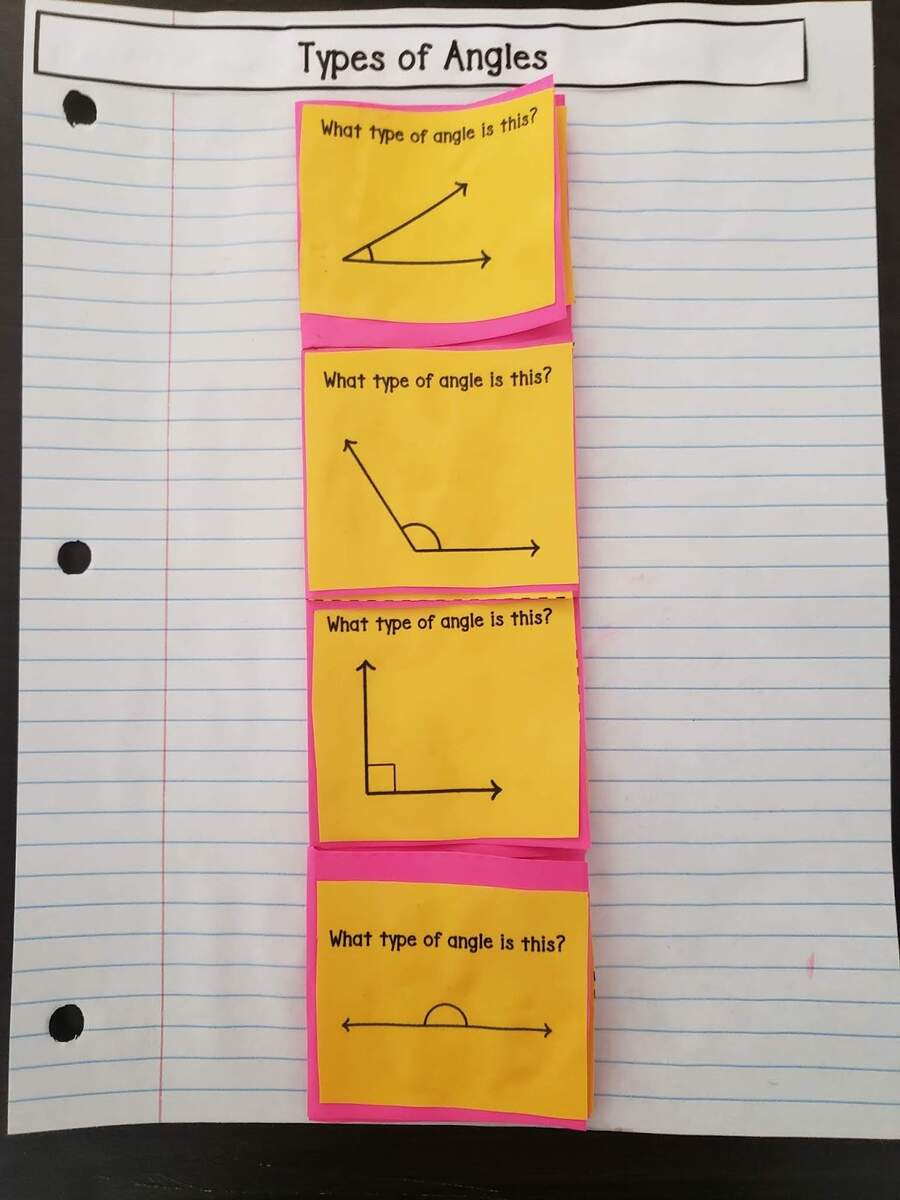 Types of Angles
What type of angle is this?
What type of angle is this?
What type of angle is this?
What type of angle is this?